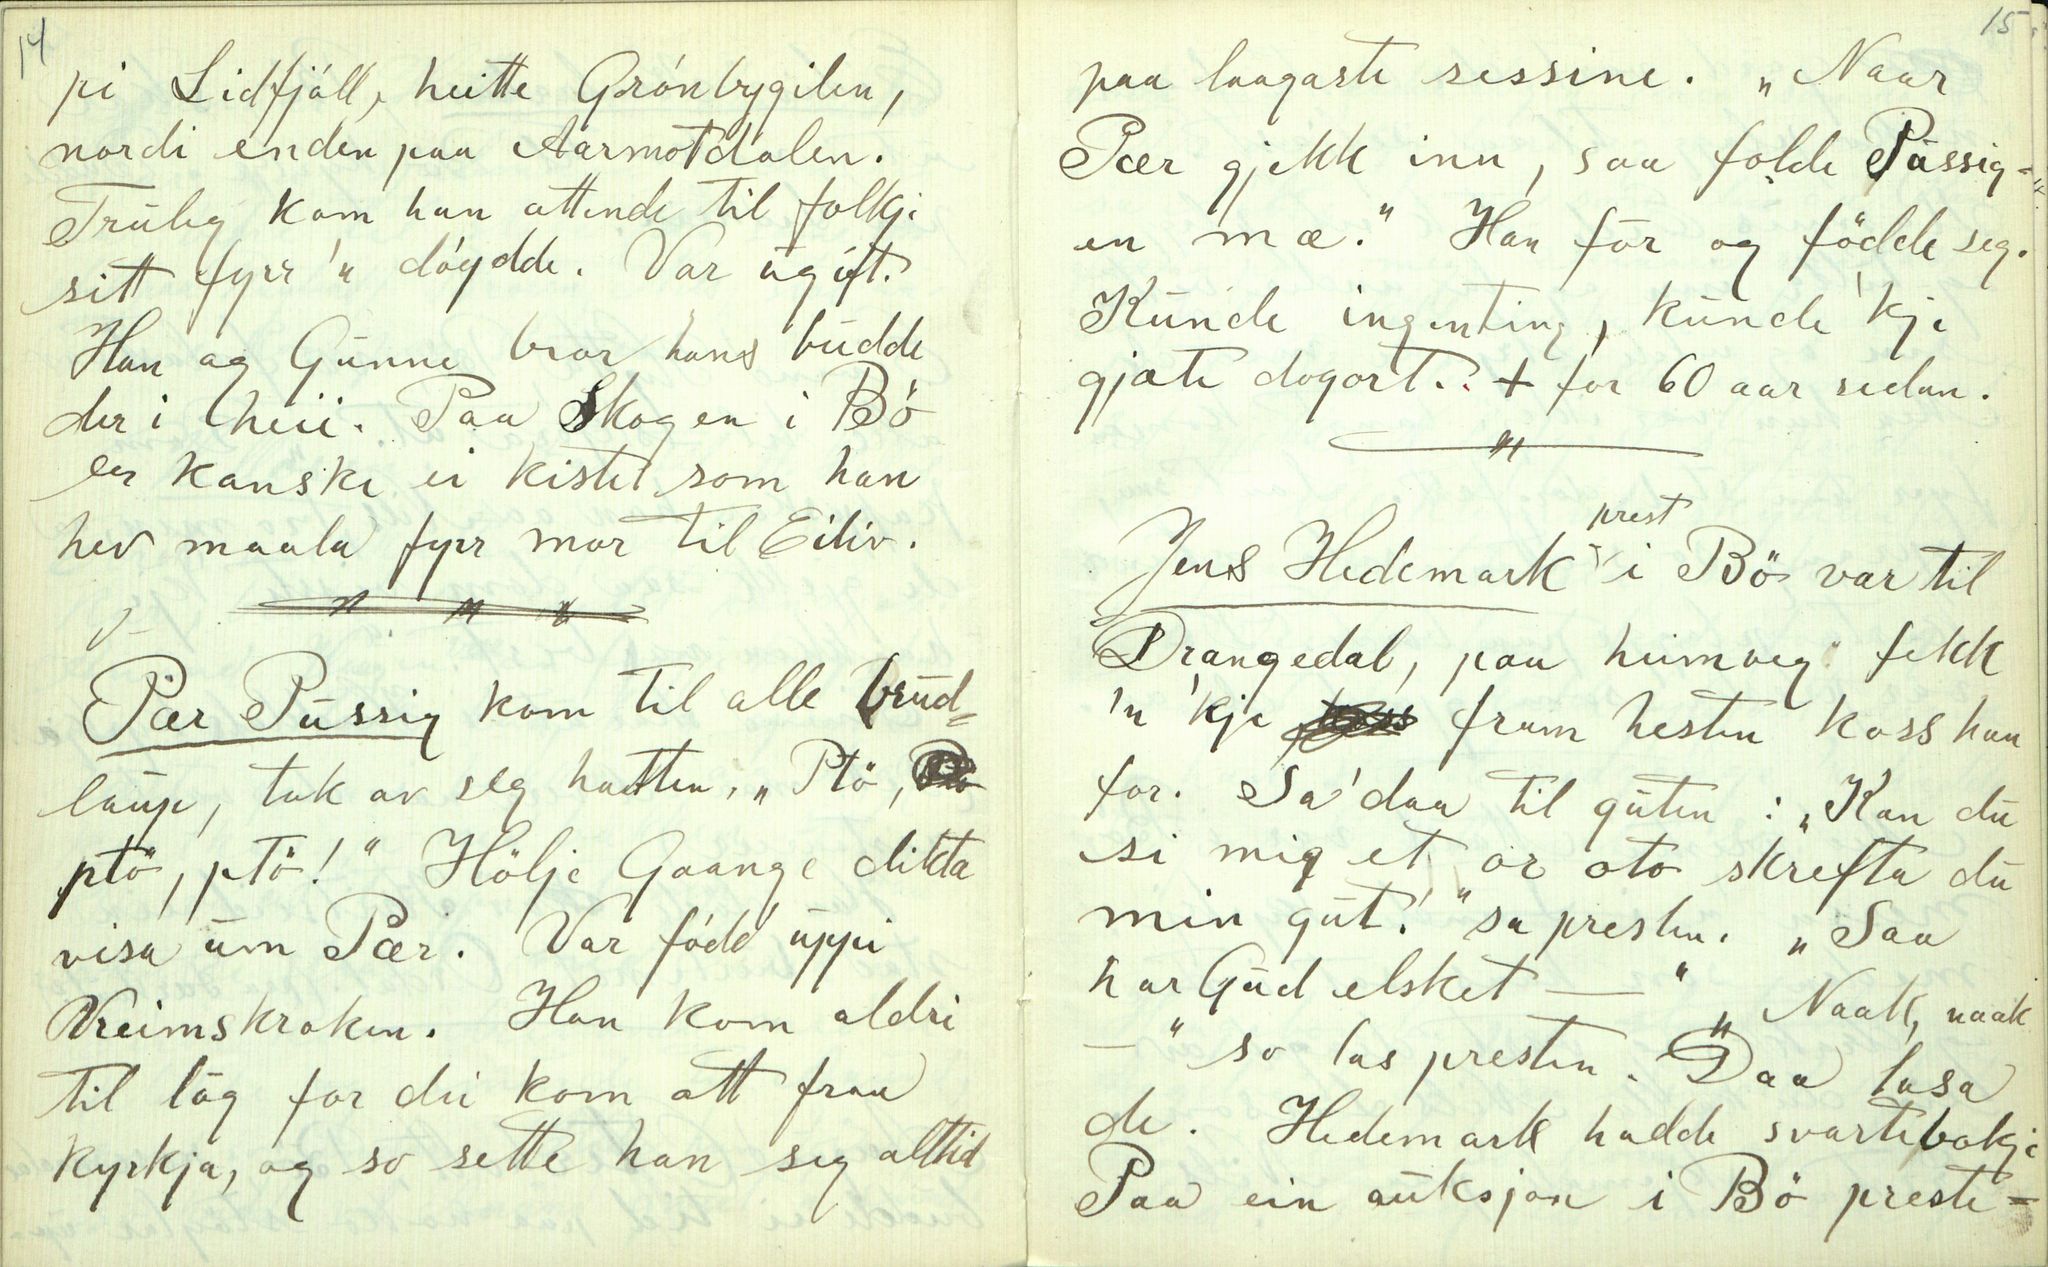 14
pi Lidfjöll, heitte Grónbygilen,
nordi enden paa Aarmotdalen.
Truleg kom han attende til folkji
sitt fyrr 'n döydde. Var ugift.
Han og Gunne bror hans budde
der i heii. Paa Skogen i Bö
er kanske ei kiste som han
hev maala fyrr mor til Eiliv.
Pær Püssig kom til alle brud-
laup, tok av seg hatten, „Ptö,
ptö, ptö!" Hölje Gaange dikta
visa um Pær. Var född uppi
Vreimskroken. Han kom aldri
til lag for dei kom att fraa
kyrkja, og so sette han seg alltid
15
paa laagaste sessine. „Naar
Pær gjekk inn, saa folde Püssig-
en mæ." Han for og födde seg.
Kunde ingenting, kunde 'kje
gjæte dogort. + for 60 aar sidan.
prest
Jens Hedemark i Bö var til
Drangedal, paa heimveg fekk
'n 'kje fram hesten koss han
for. Sa 'daa til guten: „Kan du
si mig et or oto skrefta du
min gut!" sa presten. „Saa
har Gud elsket —" „Naak, naak
—" so las presten. Daa losa
de. Hedemark hadde svarteboki
Paa ein auksjon i Bö preste-